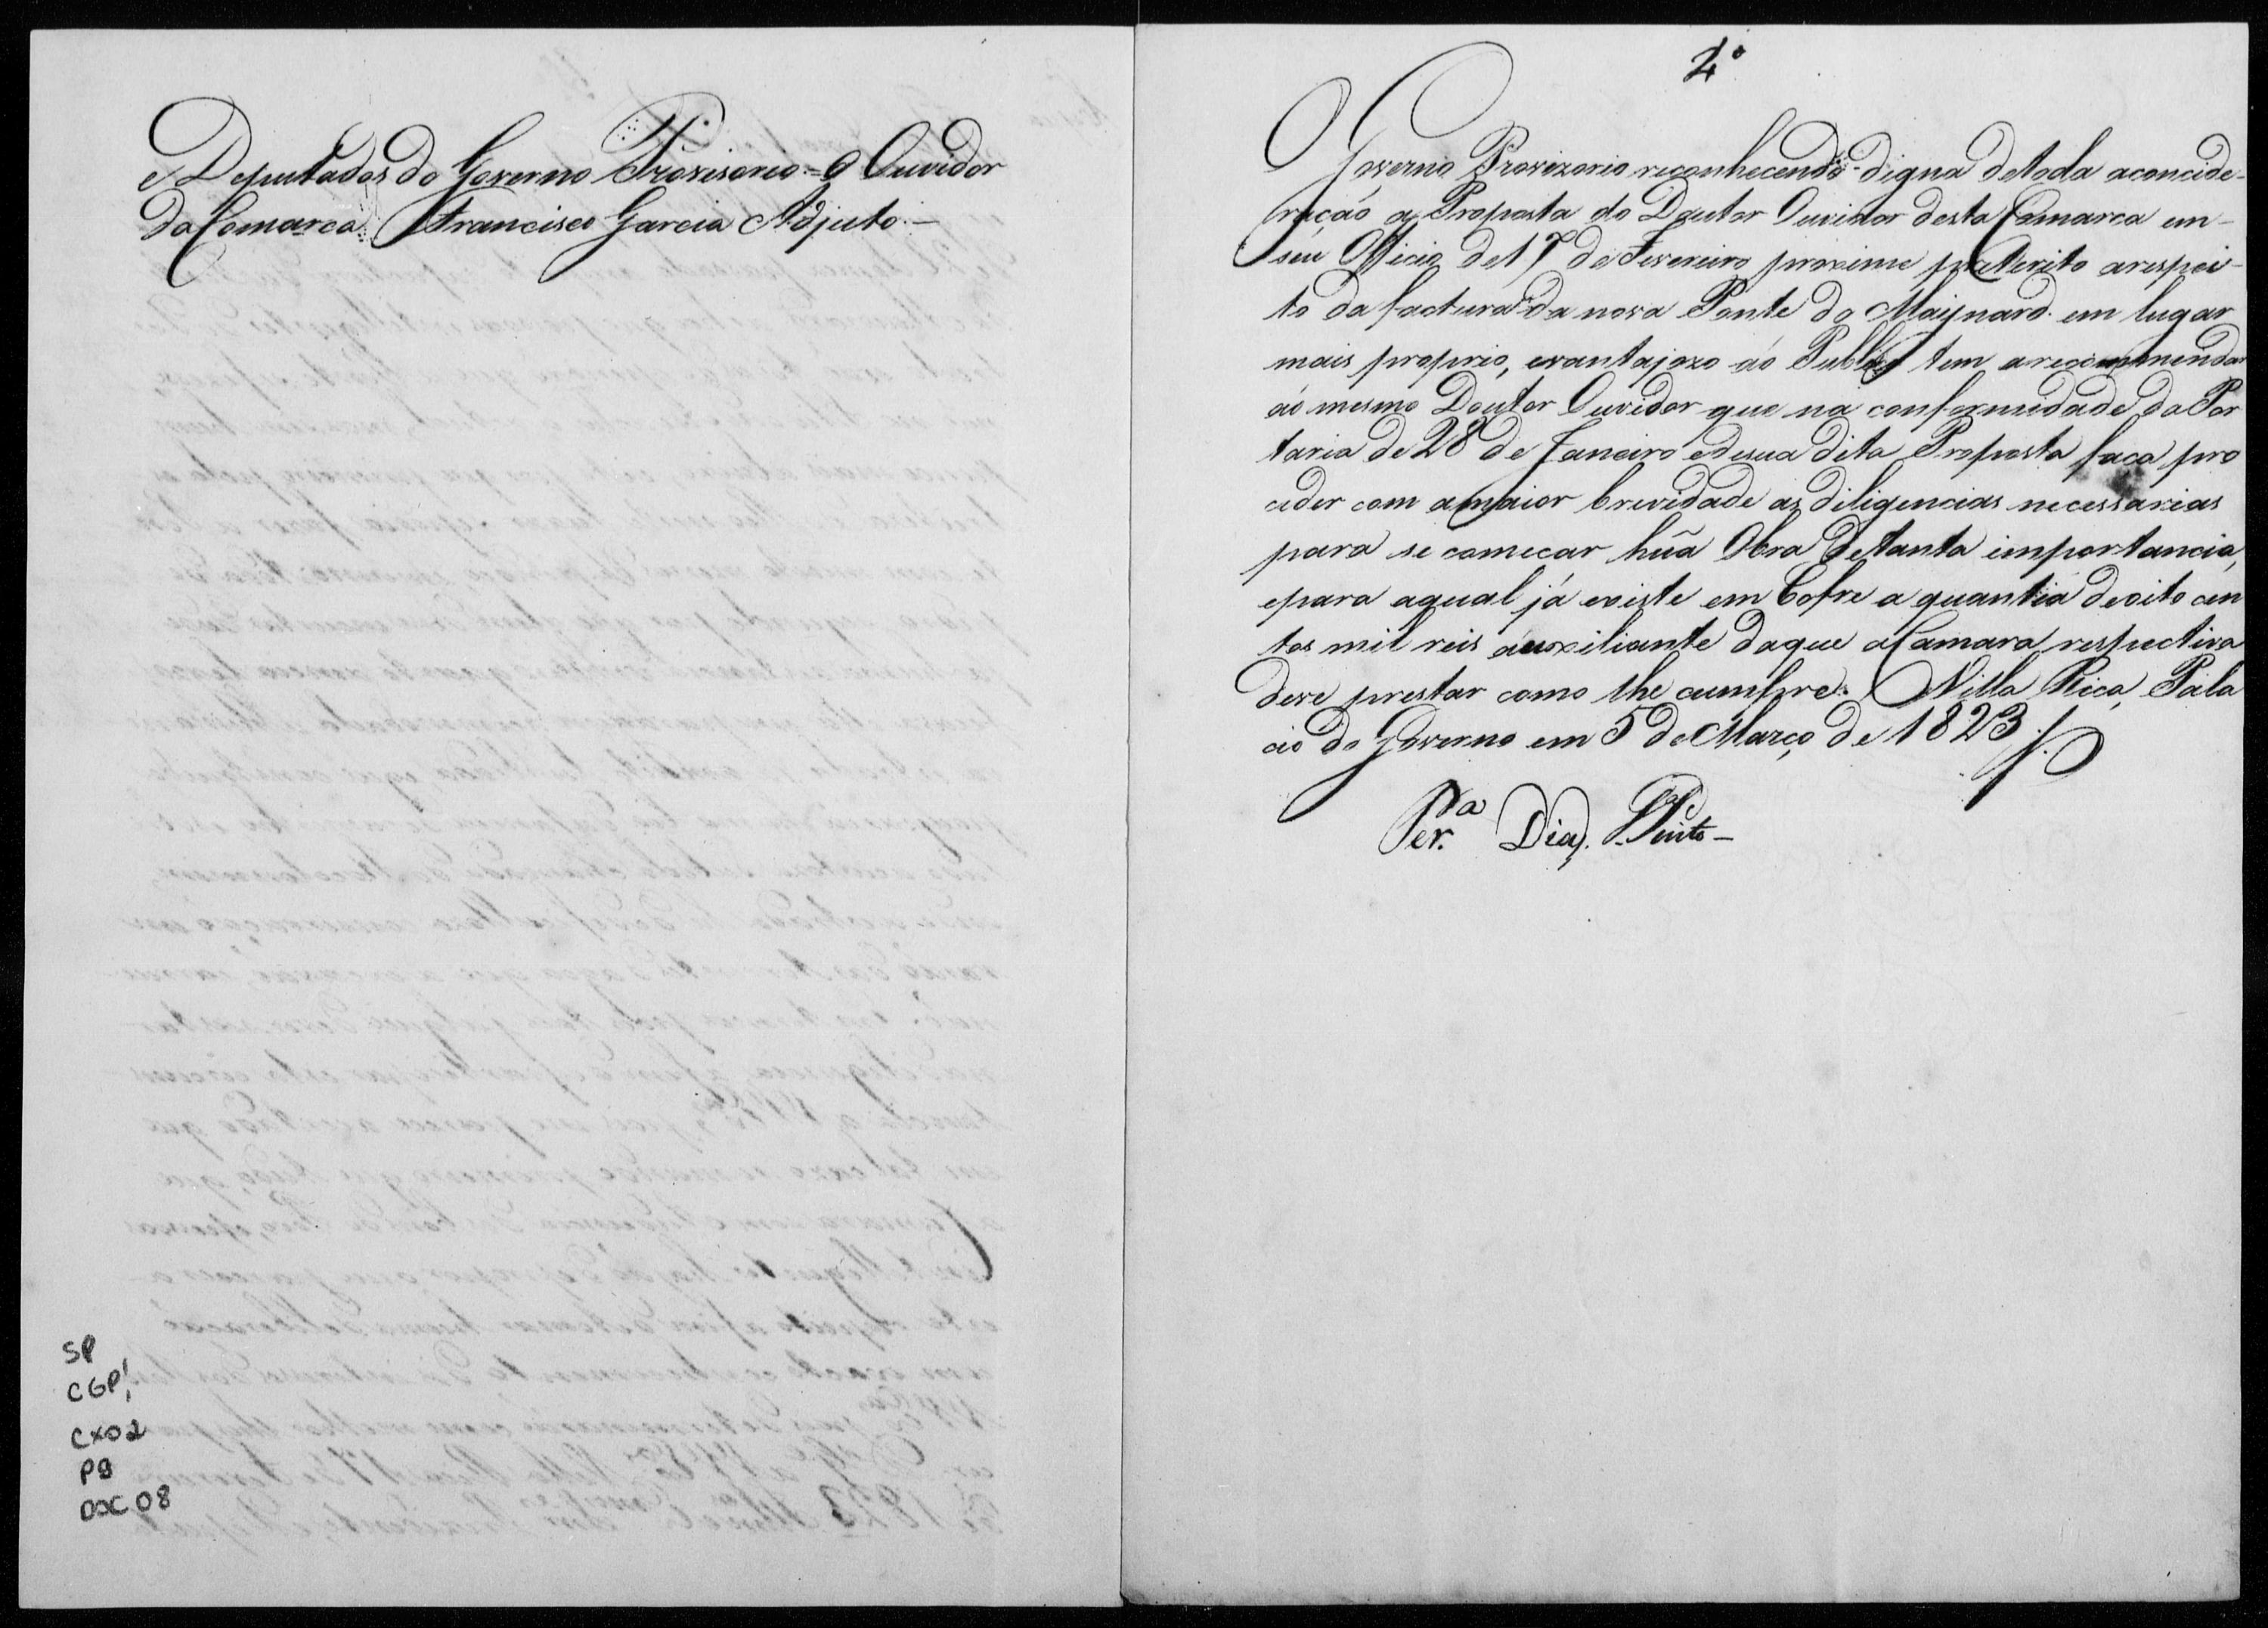 e Deputados do Governo Provisorio = O Ouvidor
da Comarca Francisco Garcia Adjuto. —
SP
CGP1
CX02
PB
DOC 08
2º
O Governo Provizorio reconhecendo digna detoda aconcide-
ração a Proposta do Doutor Ouvidor desta Comarca em
seu Officio de 17 de Fevereiro proximo preterito arespei-
to da factura da nova Ponte do Maynard em lugar
mais proprio, evantajozo ao Publico tem arecommendar
ao mesmo Doutor Ouvidor que na conformidade da Por
taria de 28 de Janeiro edesua dita Proposta faça pro
ceder com amaior brevidade as diligencias necessarias
para se começar huã Obra detanta importancia,
epara aqual já existe em Cofre a quantia deoito cen
tos mil reis auxiliante daque aCamara respectiva
deve prestar como lhe cumpre. Villa Rica, Pala
cio do Governo em 5 de Março de 1823
Per.ª Dias. Pinto —